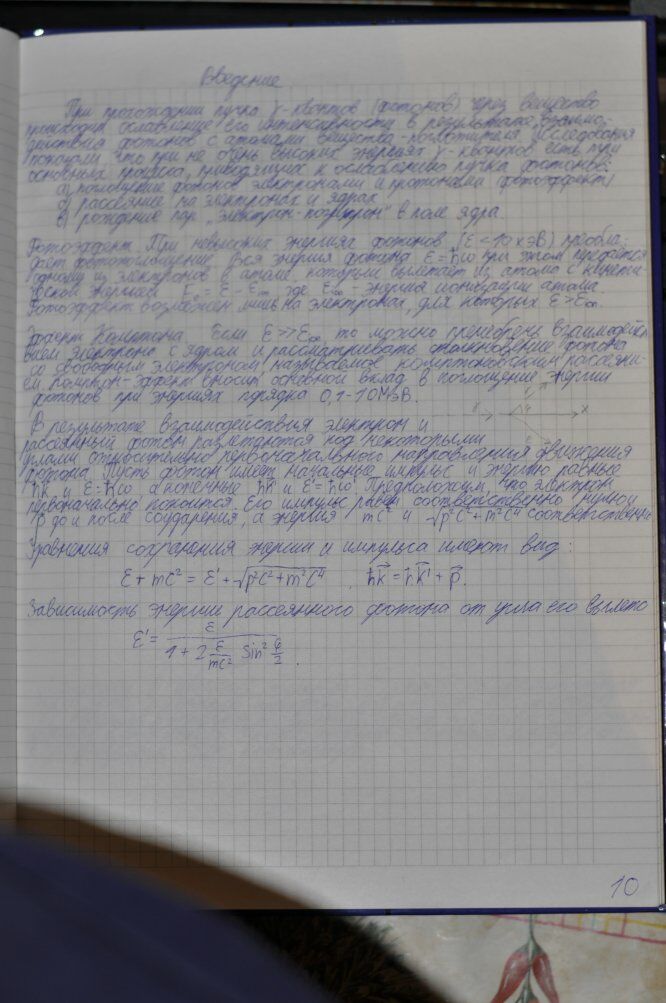 Введение
При прохождении пучка γ-квантов (фотонов) через вещество
происходит ослабление его интенсивности в результате взаимо-
действия фотонов с атомами вещества-поглотителя. Исследования
показали, что при не очень высоких энергиях γ-квантов есть три
основных процесса, приводящих к ослаблению пучка фотонов:
а) поглощение фотонов электронами и протонами (фотоэффект)
б) рассеяние на электронах и ядрах
в) рождение пар „электрон-позитрон" в поле ядра.
Фотоэффект. При невысоких энергиях фотонов (E<10 кэВ) преобла-
дает фотопоглощение. Вся энергия фотона ε=ħω при этом передается
одному из электронов в атоме, который вылетает из атома с кинети-
ческой энергией где - энергия ионизации атома.
Фотоэффект возможен лишь на электронах, для которых
Эффект Комптона. Если то можно пренебречь взаимодейст-
вием электрона с ядром и рассматривать столкновение фотона
со свободным электроном, называемое комптоновским рассеяни-
ем. Комптон-эффект вносит основной вклад в поглощение энергии
фотонов при энергиях порядка 0,1-10 МэВ.
В результате взаимодействия электрон и
рассеянный фотон разлетаются под некоторыми
углами относительно первоначального направления движения
фотона. Пусть фотон имел начальные импульс и энергию равные
ħk и ε=ħω, а конечные ħk' и ε'=ħω'. Предположим, что электрон
первоначально покоится. Его импульс равен соответственно нулю и
p до и после соударения, а энергия mc² и √p²c²+m²c⁴ соответственно
Уравнения сохранения энергии и импульса имеют вид:
ε+mc² = ε' + √p²c²+m²c⁴ , ħk⃗ = ħk⃗' + p⃗.
Зависимость энергии рассеянного фотона от угла его вылета
ε' = ε / 1 + 2 ε/mc² sin² φ/2 .
10